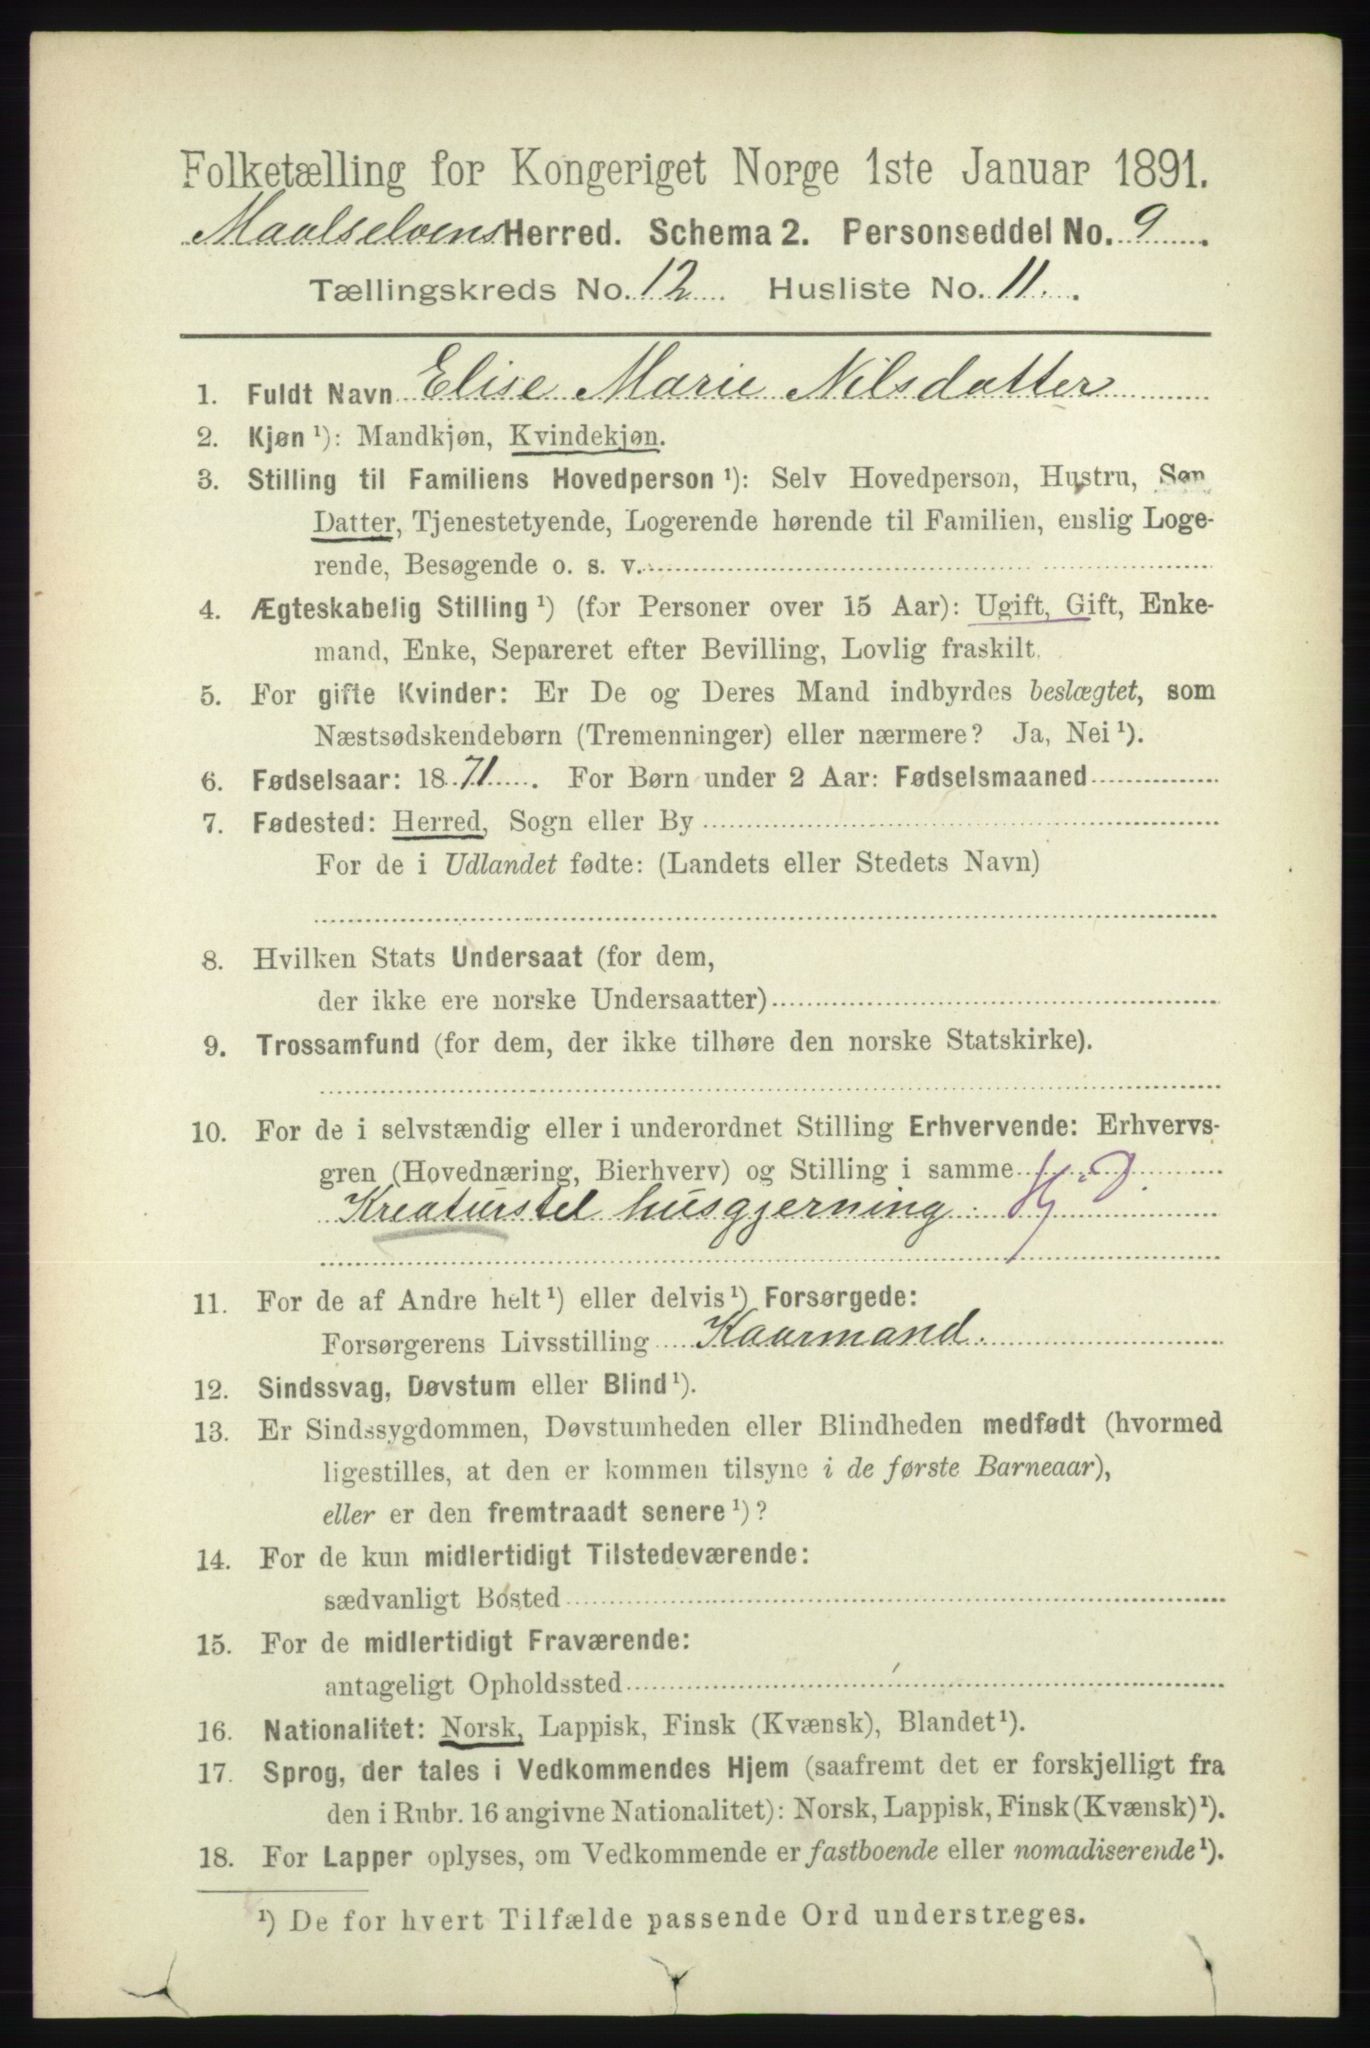 Folketælling for Kongeriget Norge 1ste Januar 1891.
Maalselvens Herred. Schema 2. Personseddel No. 9
Tællingskreds No. 12 Husliste No. 11.
1. Fuldt Navn Elise Marie Nilsdatter
2. Kjøn ¹): Mandkjøn, Kvindekjøn.
3. Stilling til Familiens Hovedperson ¹): Selv Hovedperson, Hustru, Søn
Datter, Tjenestetyende, Logerende hørende til Familien, enslig Loge-
rende, Besøgende o. s. v.
4. Ægteskabelig Stilling ¹) (for Personer over 15 Aar): Ugift, Gift, Enke-
mand, Enke, Separeret efter Bevilling, Lovlig fraskilt.
5. For gifte Kvinder: Er De og Deres Mand indbyrdes beslægtet, som
Næstsødskendebørn (Tremenninger) eller nærmere? Ja, Nei ¹).
6. Fødselsaar: 1871. For Børn under 2 Aar: Fødselsmaaned
7. Fødested: Herred, Sogn eller By
For de i Udlandet fødte: (Landets eller Stedets Navn)
8. Hvilken Stats Undersaat (for dem,
der ikke ere norske Undersaatter)
9. Trossamfund (for dem, der ikke tilhøre den norske Statskirke).
10. For de i selvstændig eller i underordnet Stilling Erhvervende: Erhvervs-
gren (Hovednæring, Bierhverv) og Stilling i samme
Kreaturstel husgjerning.
11. For de af Andre helt ¹) eller delvis ¹) Forsørgede:
Forsørgerens Livsstilling Kaarmand.
12. Sindssvag, Døvstum eller Blind ¹).
13. Er Sindssygdommen, Døvstumheden eller Blindheden medfødt (hvormed
ligestilles, at den er kommen tilsyne i de første Barneaar),
eller er den fremtraadt senere ¹)?
14. For de kun midlertidigt Tilstedeværende:
sædvanligt Bosted
15. For de midlertidigt Fraværende:
antageligt Opholdssted
16. Nationalitet: Norsk, Lappisk, Finsk (Kvænsk), Blandet ¹).
17. Sprog, der tales i Vedkommendes Hjem (saafremt det er forskjelligt fra
den i Rubr. 16 angivne Nationalitet): Norsk, Lappisk, Finsk (Kvænsk) ¹).
18. For Lapper oplyses, om Vedkommende er fastboende eller nomadiserende ¹).
¹) De for hvert Tilfælde passende Ord understreges.